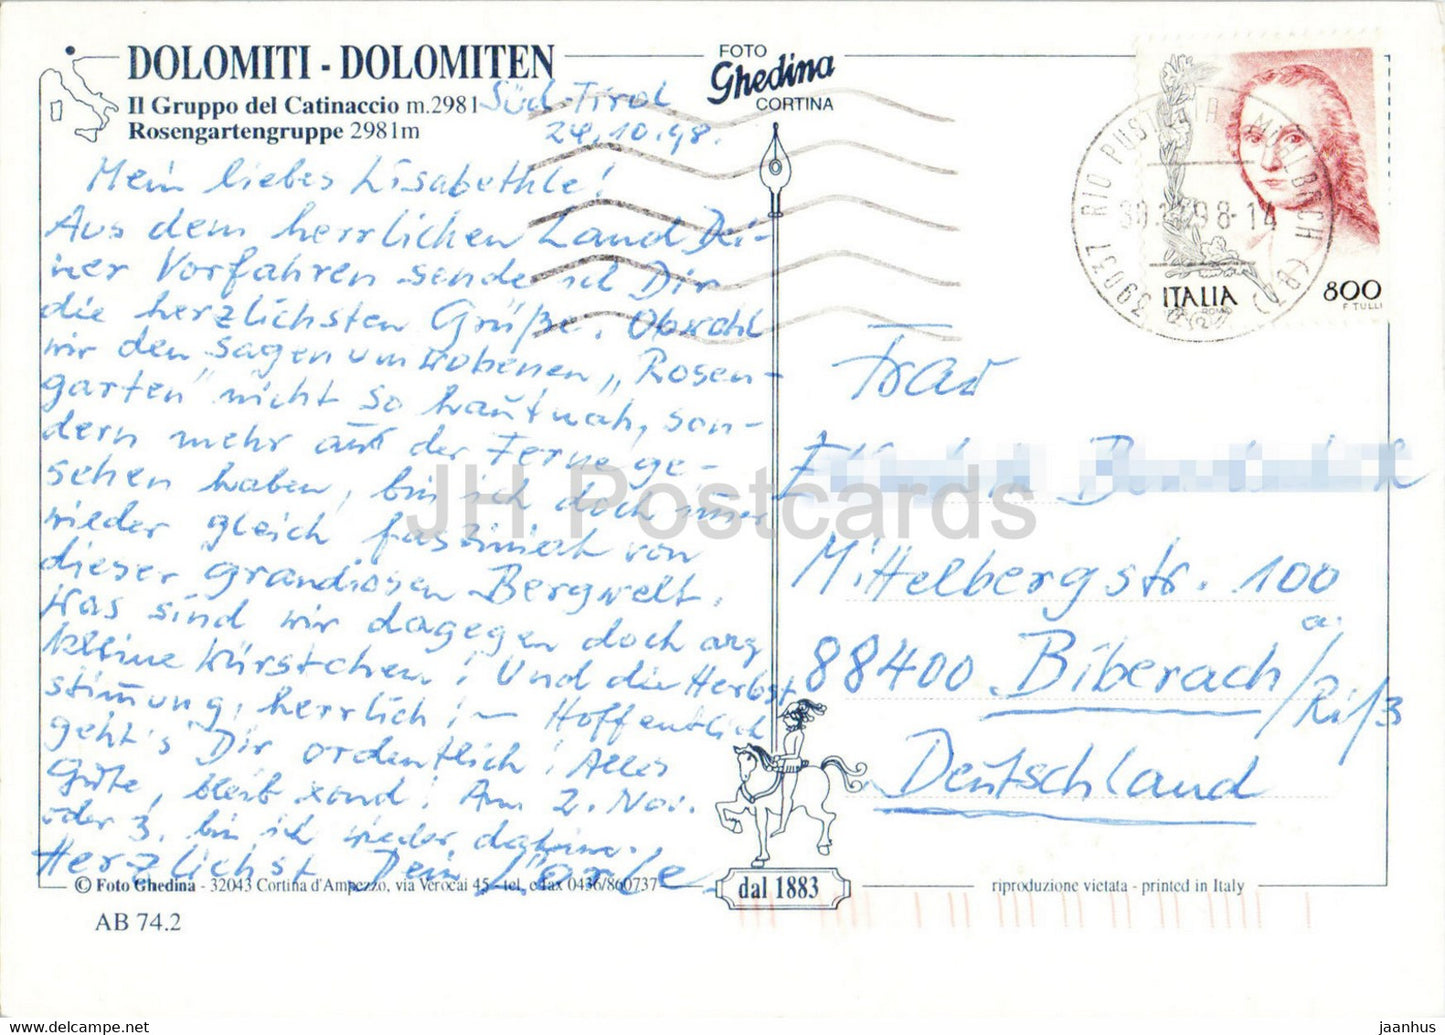 DOLOMITI - DOLOMITEN
Il Gruppo del Catinaccio m.2981
Rosengartengruppe 2981m
FOTO
Ghedina
CORTINA
Süd-Tirol
24.10.98.
Mein liebes Lisabethle!
Aus dem herrlichen Land Dei-
ner Vorfahren sende ich Dir
die herzlichsten Grüße. Obwohl
wir den sagenumwobenen „Rosen-
garten" nicht so hautnah, son-
dern mehr aus der Ferne ge-
sehen haben, bin ich doch immer
wieder gleich fasziniert von
dieser grandiosen Bergwelt.
Was sind wir dagegen doch arg
kleine Würstchen! Und die Herbst
stimmung, herrlich! – Hoffentlich
geht's Dir ordentlich! Alles
Gute, bleib xond! Am 2. Nov.
oder 3. bin ich wieder daheim.
Herzlichst Dein Lorle
39037 RIO PUSTERIA MUEHLBACH (BZ)
98-14
ITALIA
800
F. TULLI
Frau
Mittelbergstr. 100
88400 Biberach a. /Riß
Deutschland
JH Postcards
© Foto Ghedina - 32043 Cortina d'Ampezzo, via Verocai 45 - tel. e fax 0436/860737
dal 1883
riproduzione vietata - printed in Italy
AB 74.2
www.hippostcard.com/store/jaanhus
jaanhus